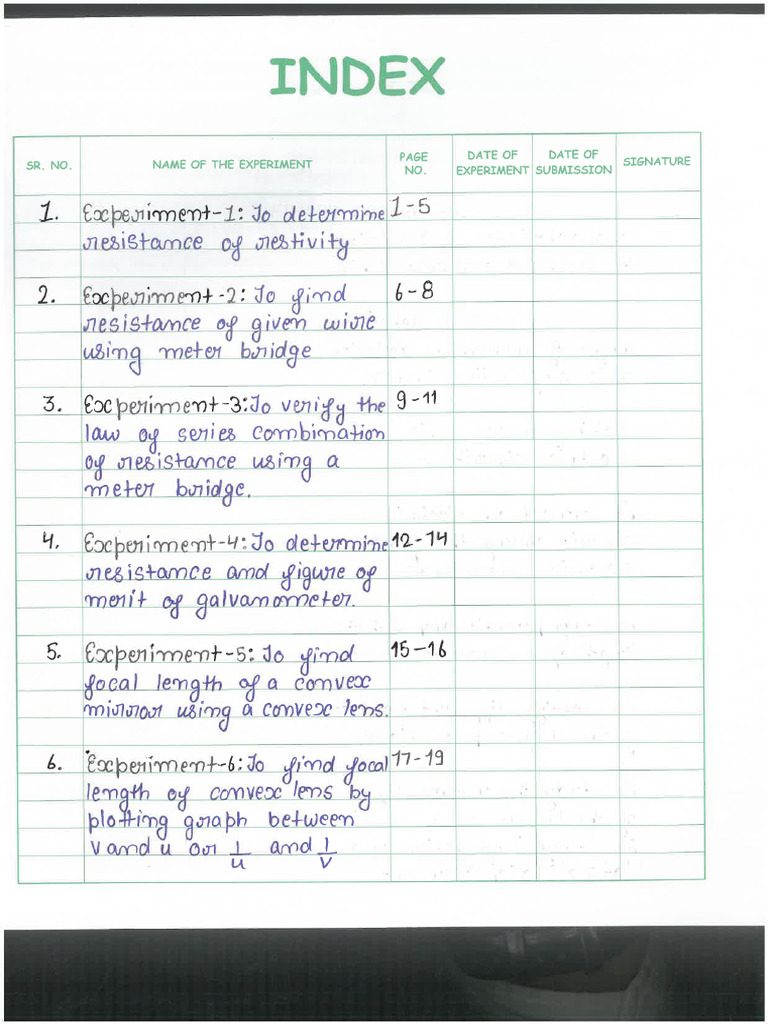 INDEX
SR. NO. NAME OF THE EXPERIMENT PAGE NO. DATE OF EXPERIMENT DATE OF SUBMISSION SIGNATURE
1. Experiment-1: To determine 1-5
resistance of restivity
2. Experiment-2: To find 6-8
resistance of given wire
using meter bridge
3. Experiment-3: To verify the 9-11
law of series combination
of resistance using a
meter bridge.
4. Experiment-4: To determine 12-14
resistance and figure of
merit of galvanometer.
5. Experiment-5: To find 15-16
focal length of a convex
mirror using a convex lens.
6. Experiment-6: To find focal 17-19
length of convex lens by
plotting graph between
v and u or 1/u and 1/v